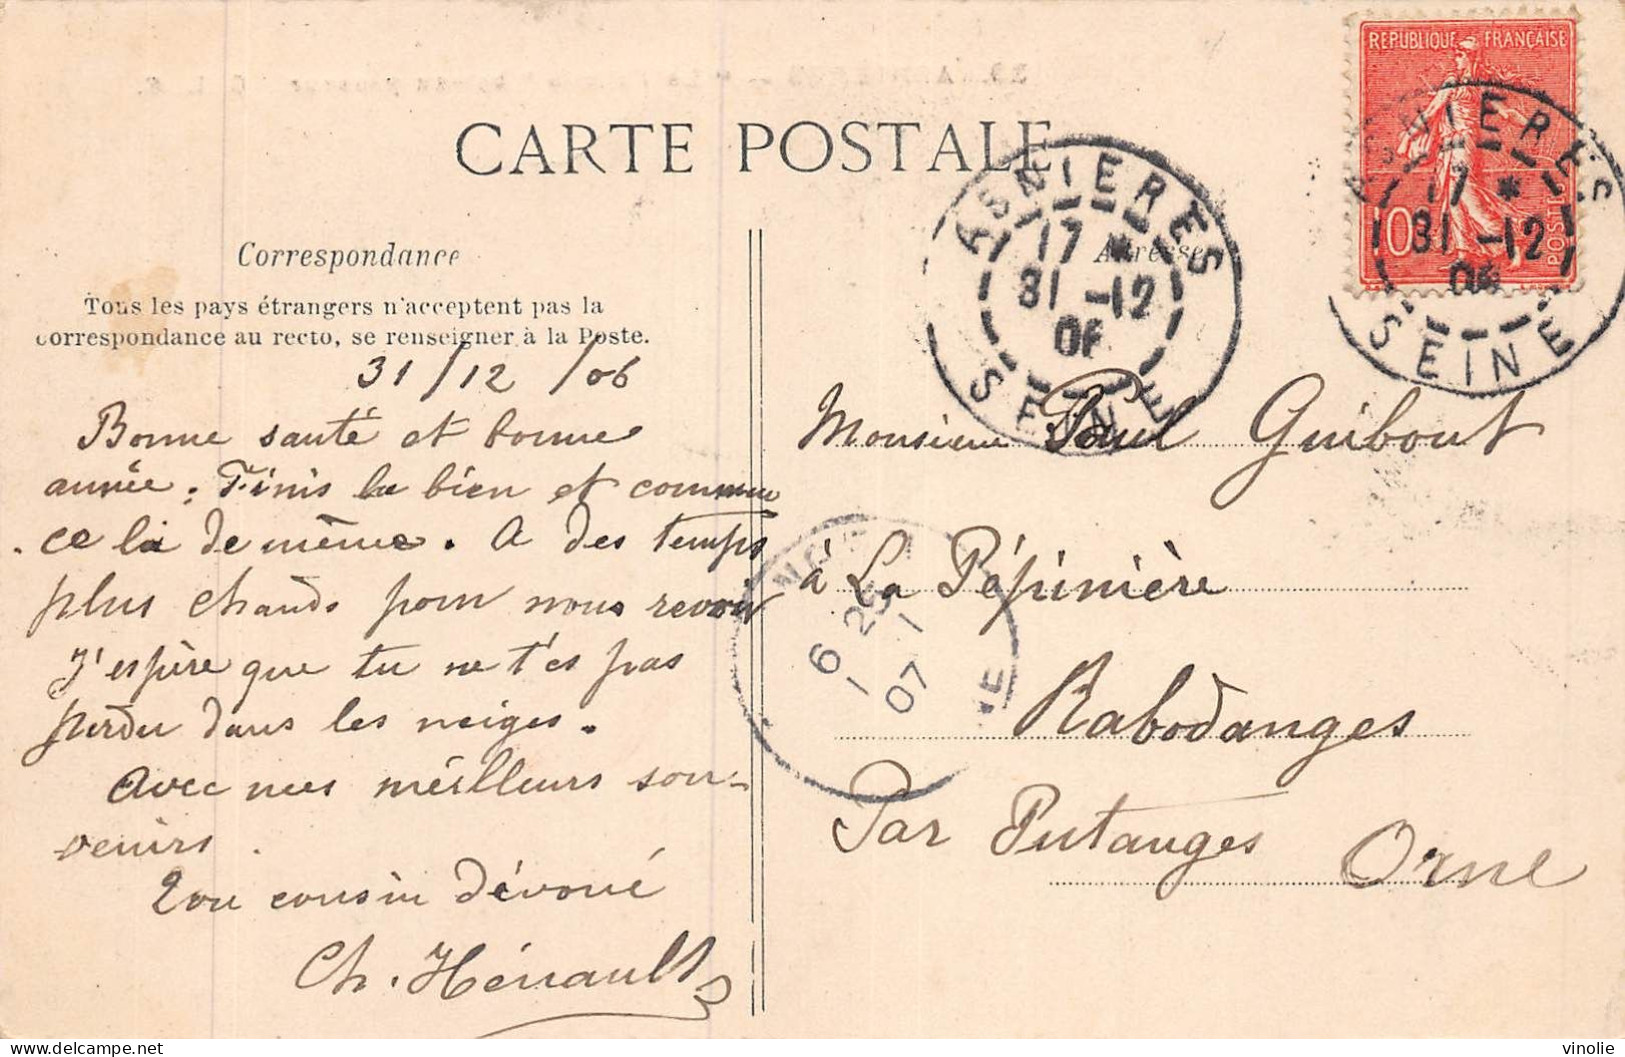 CARTE POSTALE
Correspondance
Tous les pays étrangers n'acceptent pas la
correspondance au recto, se renseigner à la Poste.
31/12/06
Bonne santé et bonne
année. Finis la bien et commme
ce la de même. A des temps
plus chauds pour nous revoir
J'espère que tu ne t'es pas
perdu dans les neiges.
Avec mes meilleurs sou-
venirs.
Ton cousin dévoué
Ch. Hérault
Adresse
REPUBLIQUE FRANÇAISE
10
POSTES
ASNIERES
17 *
31 -12
06
SEINE
ASNIERES
17 *
31 -12
06
SEINE
Monsieur Paul Guibout
à La Pépinière
Rabodanges
Par Putanges
Orne
6 25
1 - 1
07
NE
vinolie